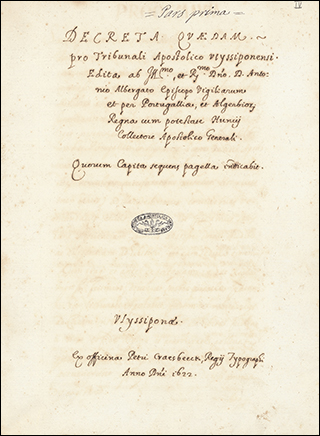 = Pars prima =
IV
DECRETA QUÆDAM
pro Tribunali Apostolico Ulyssiponensi
Edita ab Ill.mo, et R.mo Dño. D. Anto-
nio Albergato Episcopo Vigiliarum
et per Portugalliæ, et Algarbior,
Regna cum potestate Nuncij
Collectore Apostolico Generali.
Quorum Capita sequens pagella indicabit.
Ulyssiponæ.
Ex officina Petri Craesbeeck, Regij Typograph.
Anno Dñi 1622.